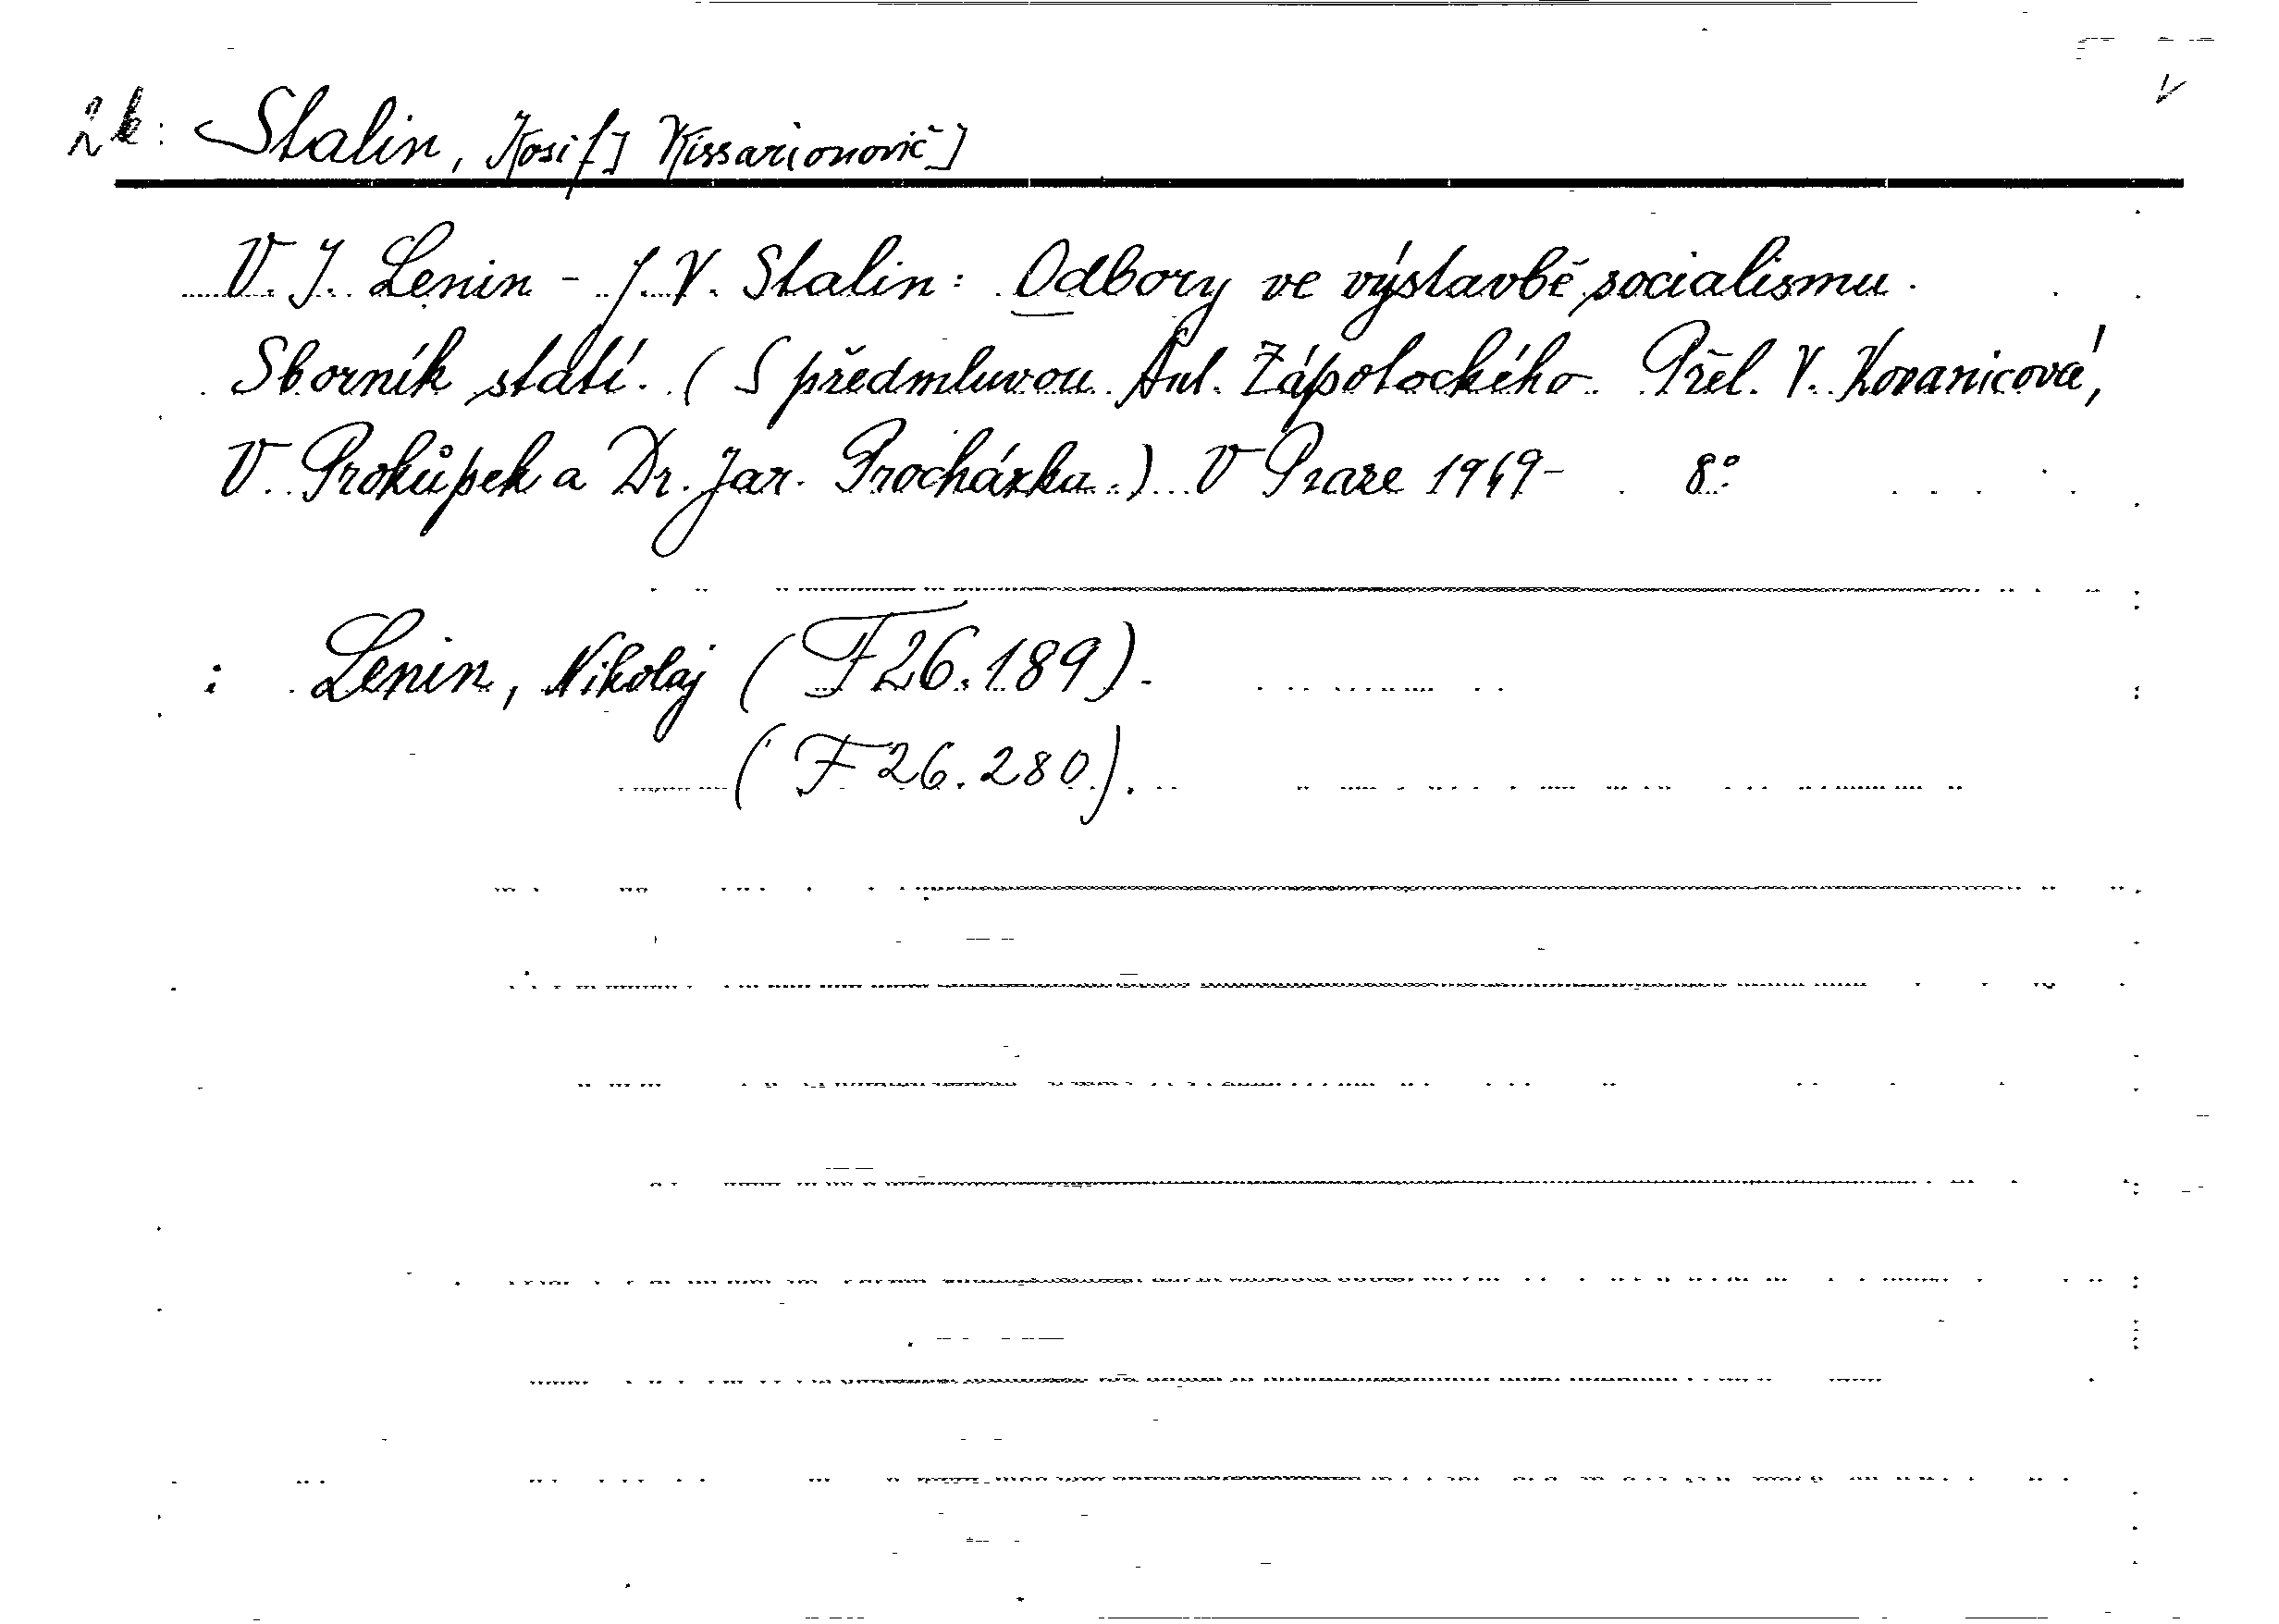 2k: Stalin, J[osif] V[issarionovič]
V. J. Lenin - J. V. Stalin: Odbory ve výstavbě socialismu.
Sborník statí. (S předmluvou Ant. Zápotockého. Přel. V. Kovanicová,
V. Prokůpek a Dr. Jar. Procházka.) V Praze 1949- 8°
: Lenin, Nikolaj (F 26.189).
(F 26.280).